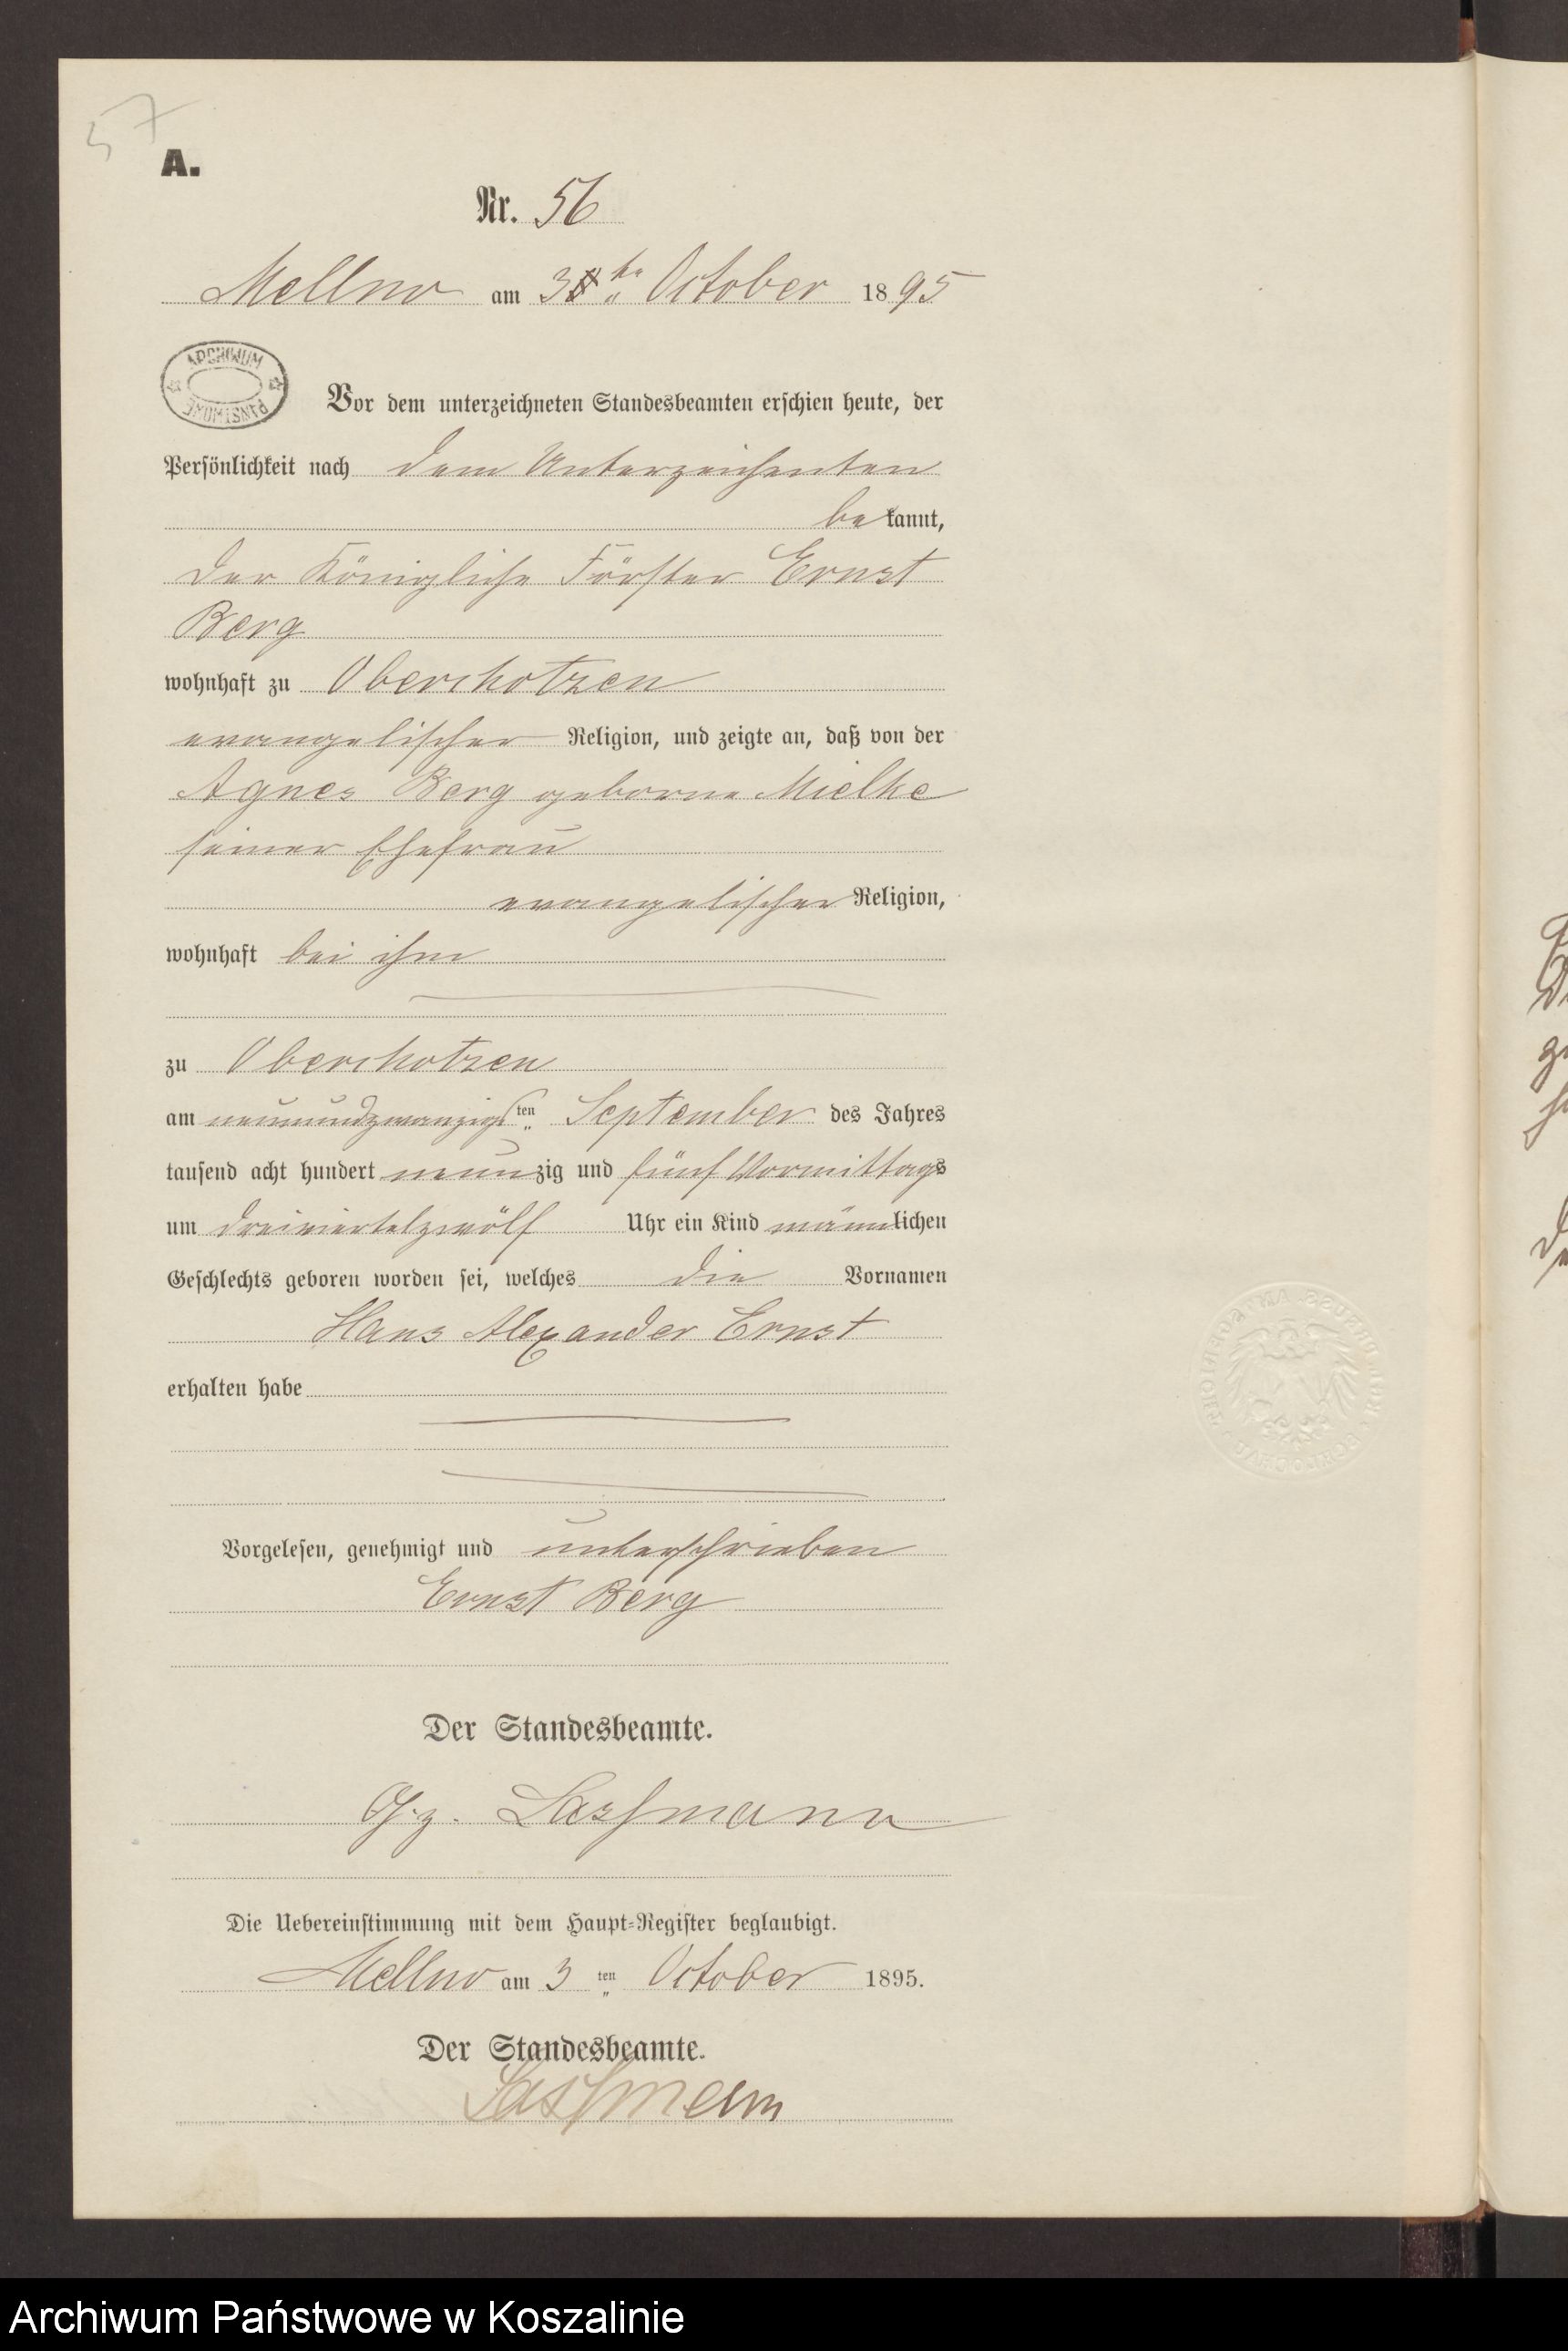 57
A.
Nr. 56
Mellno am 3ten October 1895
ARCHIWUM PAŃSTWOWE
Vor dem unterzeichneten Standesbeamten erschien heute, der
Persönlichkeit nach dem Unterzeichneten
bekannt,
der Königliche Förster Ernst
Berg
wohnhaft zu Oberchotzen
evangelischer Religion, und zeigte an, daß von der
Agnes Berg geborne Mielke
seiner Ehefrau
evangelischer Religion,
wohnhaft bei ihm
zu Oberchotzen
am neunundzwanzigsten September des Jahres
tausend acht hundert neunzig und fünf Vormittags
um dreiviertelzwölf Uhr ein Kind männlichen
Geschlechts geboren worden sei, welches die Vornamen
Hans Alexander Ernst
erhalten habe
Vorgelesen, genehmigt und unterschrieben
Ernst Berg
Der Standesbeamte.
Gz. Lassmann
Die Uebereinstimmung mit dem Haupt-Register beglaubigt.
Mellno am 3ten October 1895.
Der Standesbeamte.
Lassmann
Archiwum Państwowe w Koszalinie